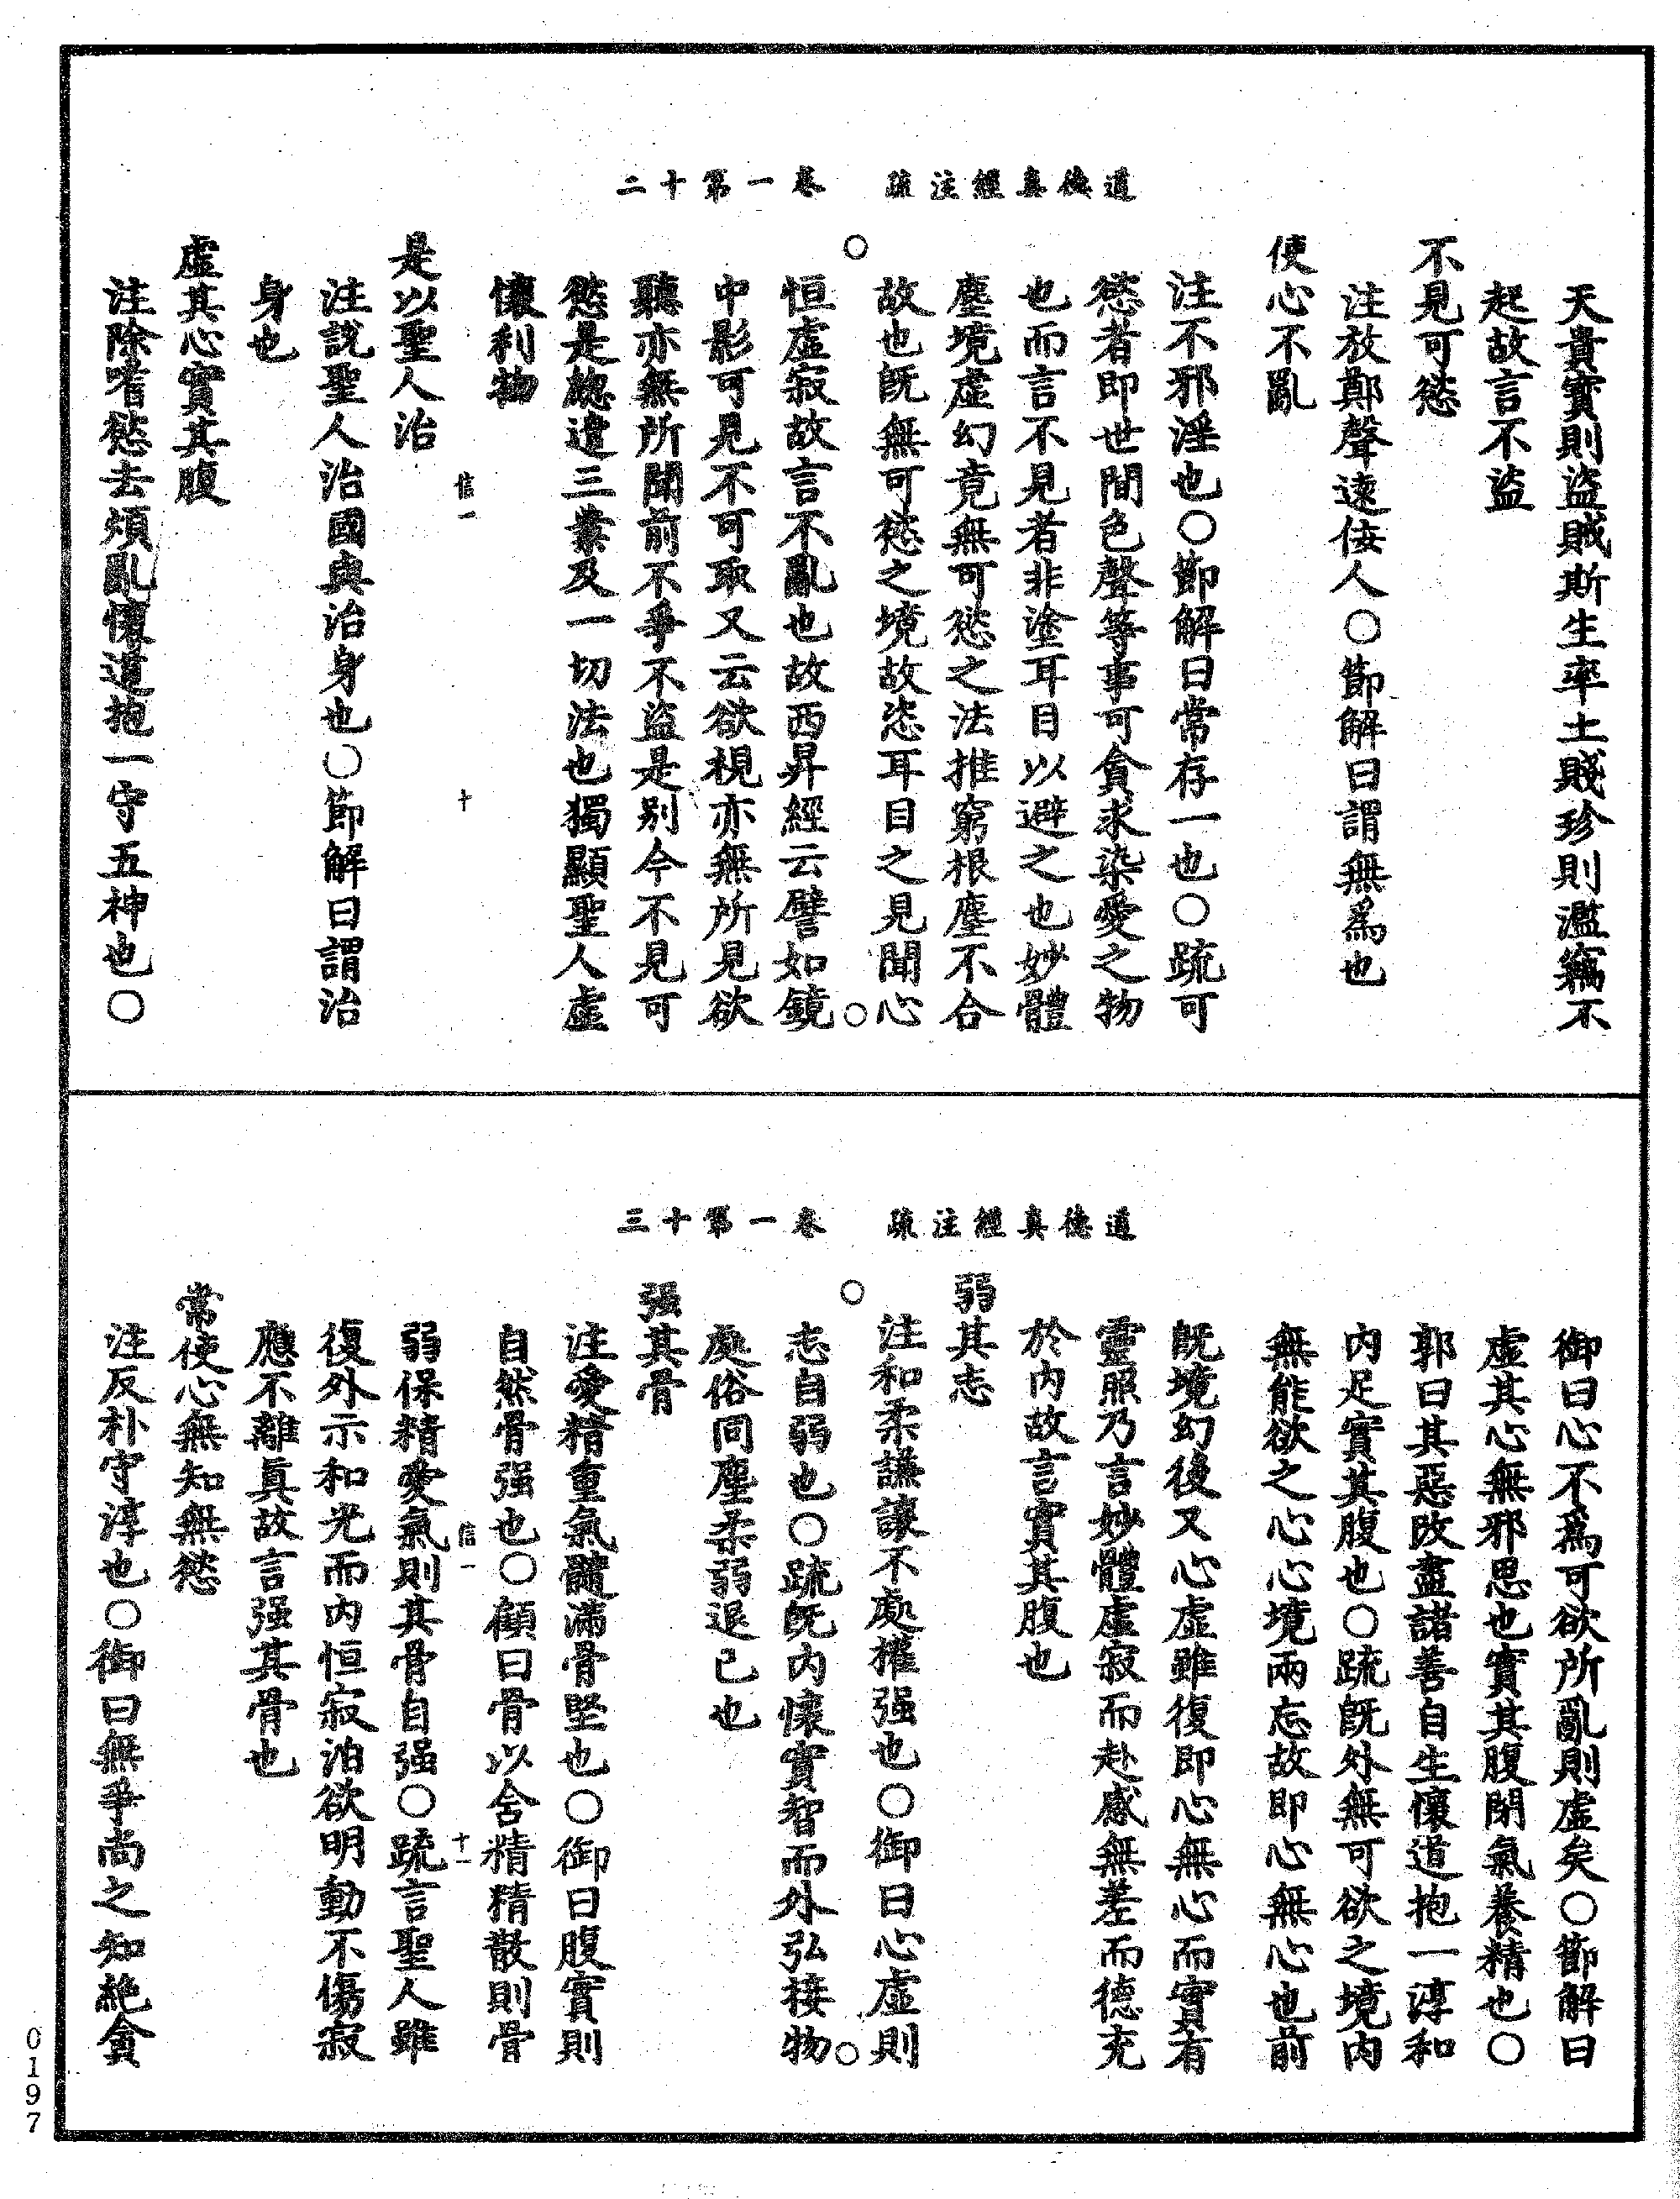 道德真經注疏　卷一第十二
天貴寳則盜賊斯生率土賤珍則濫竊不
起故言不盜
不見可慾
注放鄭聲遠佞人○節解曰謂無爲也
使心不亂
注不邪淫也○節解曰常存一也○疏可
慾者即世間色聲等事可貪求染愛之物
也而言不見者非塗耳目以避之也妙體
塵境虛幻竟無可慾之法推窮根塵不合
故也旣無可慾之境故恣耳目之見聞心
恒虛寂故言不亂也故西昇經云譬如鏡
中影可見不可取又云欲視亦無所見欲
聽亦無所聞前不爭不盜是別今不見可
慾是總遣三業及一切法也獨顯聖人虛
懷利物
信一
十
是以聖人治
注說聖人治國與治身也○節解曰謂治
身也
虛其心實其腹
注除嗜慾去煩亂懷道抱一守五神也○
道德真經注疏　卷一第十三
御曰心不爲可欲所亂則虛矣○節解曰
虛其心無邪思也實其腹閉氣養精也○
郭曰其惡改盡諸善自生懷道抱一淳和
內足實其腹也○疏旣外無可欲之境內
無能欲之心心境兩忘故即心無心也前
旣境幻後又心虛雖復即心無心而實有
靈照乃言妙體虛寂而赴感無差而德充
於內故言實其腹也
弱其志
注和柔謙讓不處權强也○御曰心虛則
志自弱也○疏旣內懷實智而外弘接物
處俗同塵柔弱退已也
强其骨
注愛精重氣髓滿骨堅也○御曰腹實則
自然骨强也○顧曰骨以含精精散則骨
信一
十一
弱保精愛氣則其骨自强○疏言聖人雖
復外示和光而內恒寂泊欲明動不傷寂
應不離真故言强其骨也
常使心無知無慾
注反朴守淳也○御曰無爭尚之知絕貪
0197